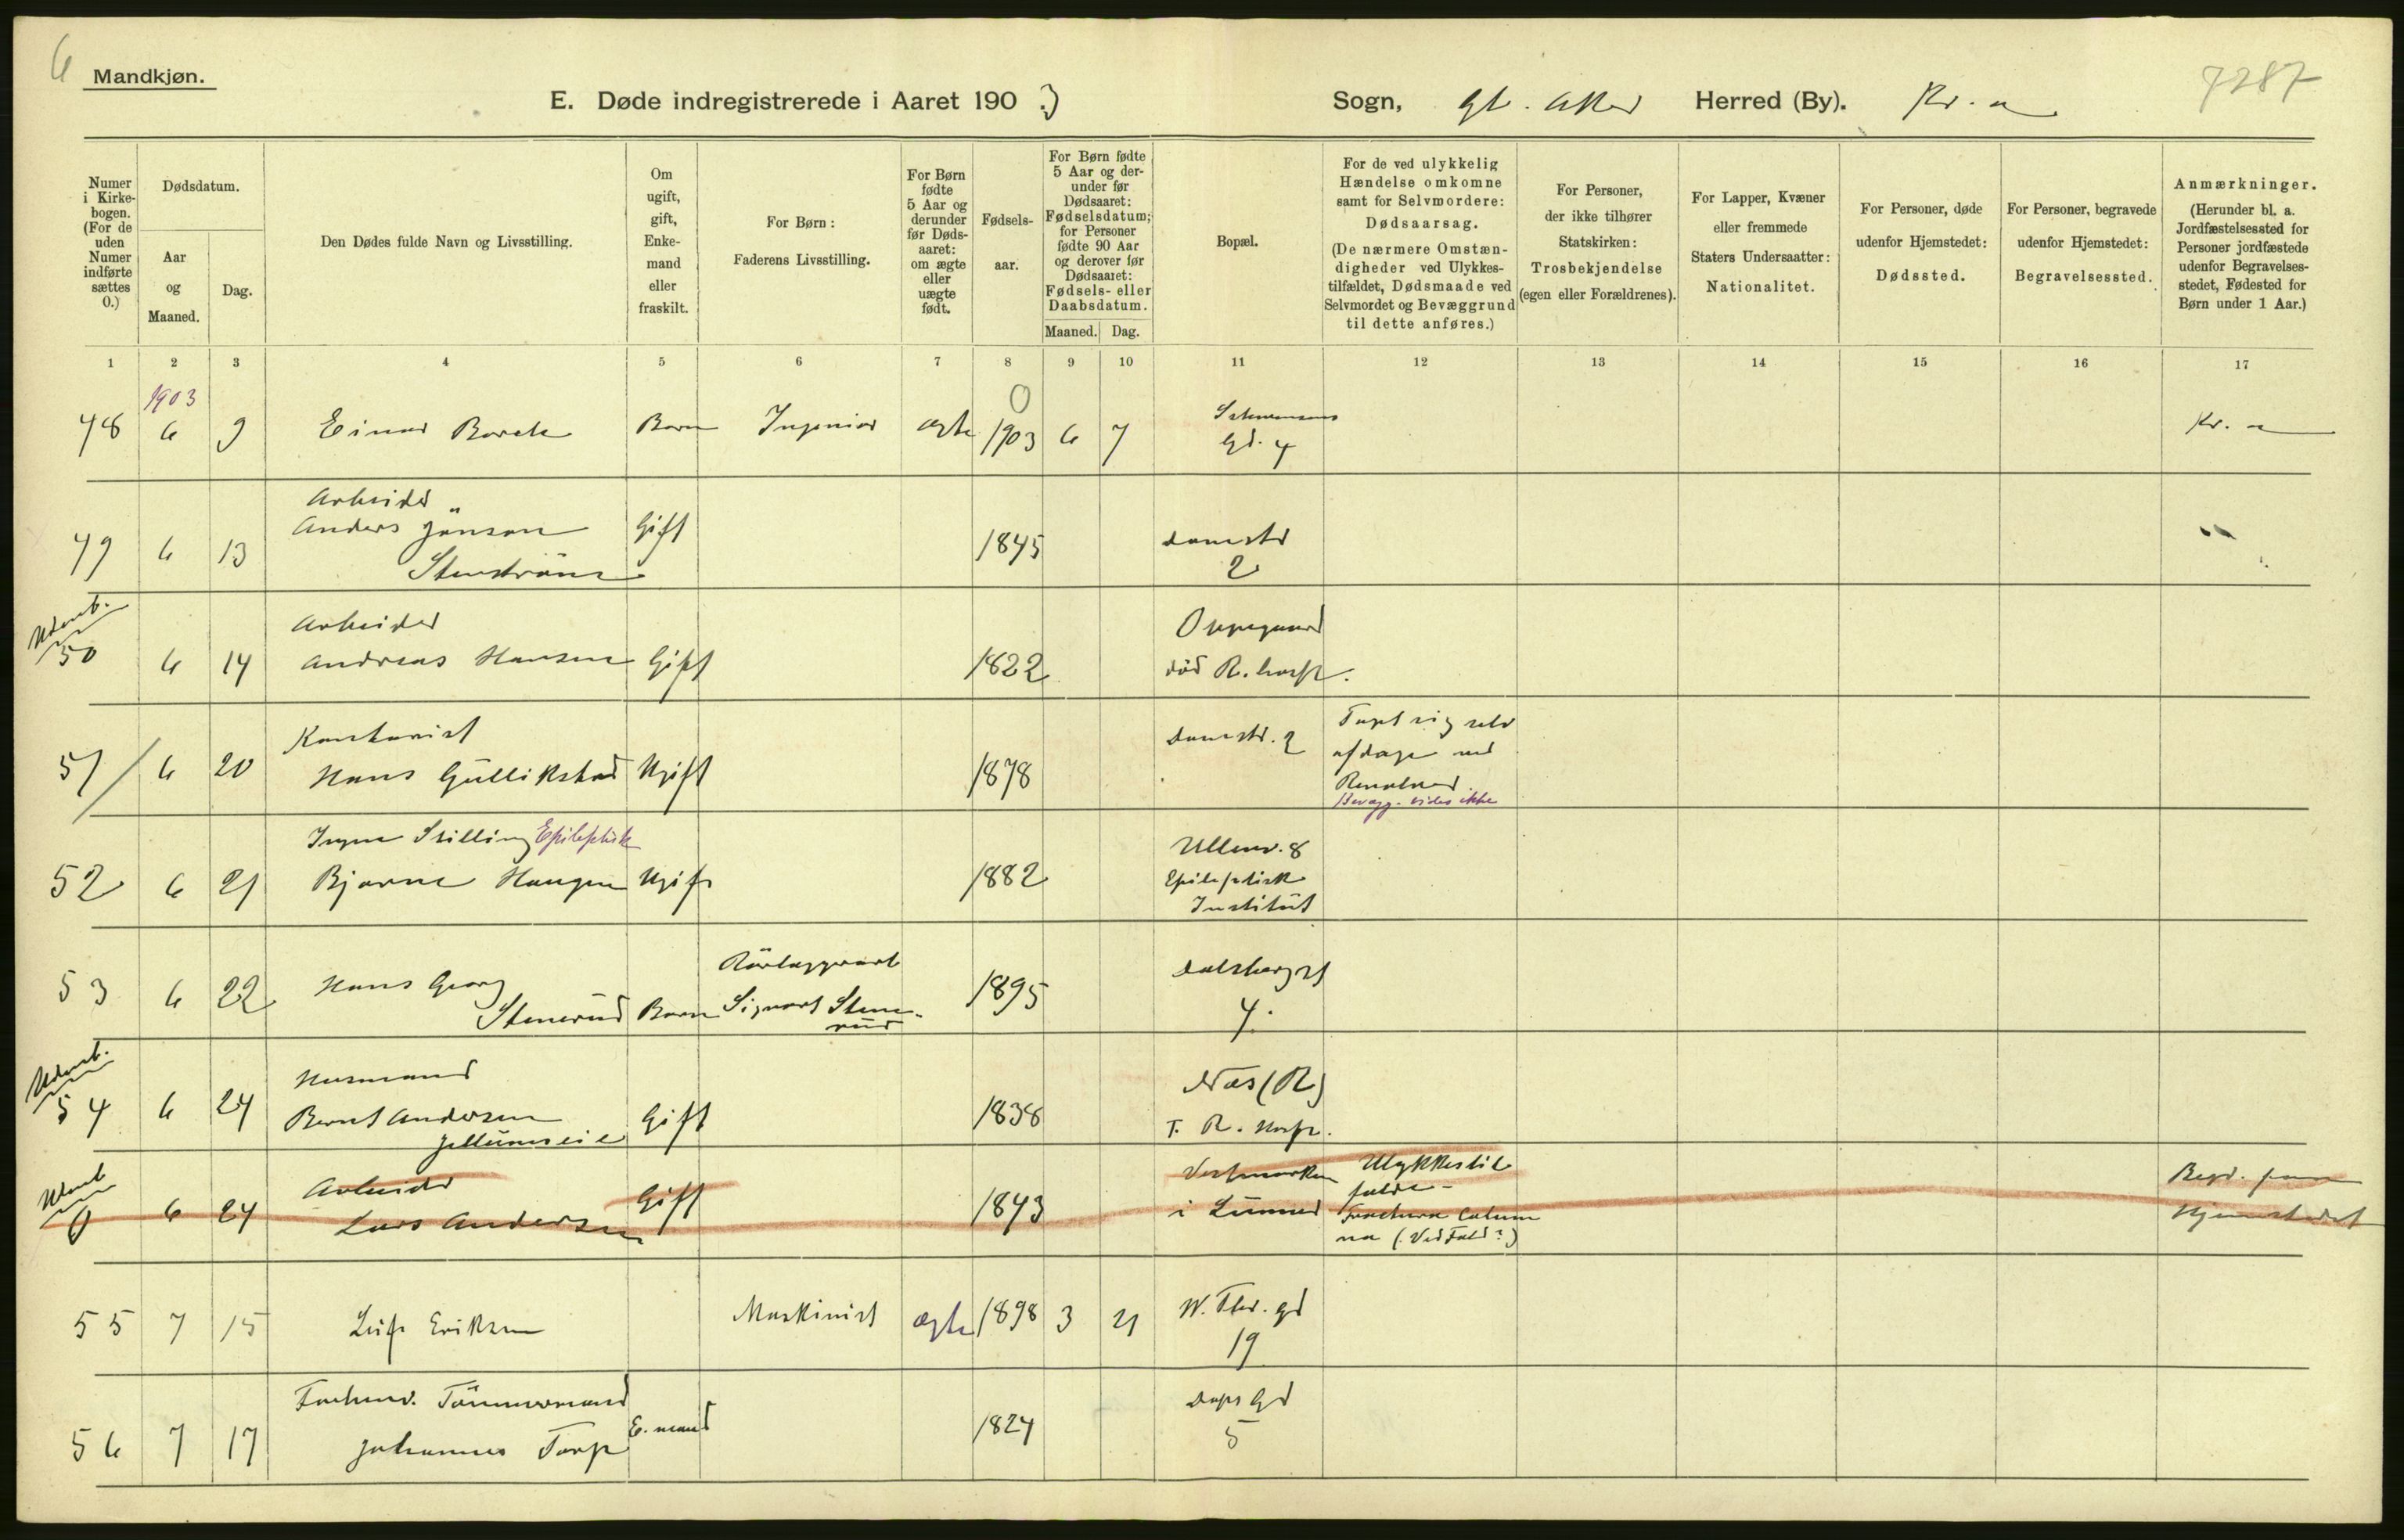 6
Mandkjøn.
E. Døde indregistrerede i Aaret 1903
Sogn, Gl. Aker Herred (By). Kr. a
7287
Numer i Kirke-bogen. (For de uden Numer indførte sættes 0.)
Dødsdatum.
Aar og Maaned.
Dag.
Den Dødes fulde Navn og Livsstilling.
Om ugift, gift, Enke-mand eller fraskilt.
For Børn:
Faderens Livsstilling.
For Børn fødte 5 Aar og derunder før Døds-aaret: om ægte eller uægte født.
Fødsels-aar.
For Børn fødte 5 Aar og der-under før Dødsaaret: Fødselsdatum; for Personer fødte 90 Aar og derover før Dødsaaret: Fødsels- eller Daabsdatum.
Maaned. Dag.
Bopæl.
For de ved ulykkelig Hændelse omkomne samt for Selvmordere: Dødsaarsag. (De nærmere Omstæn-digheder ved Ulykkes-tilfældet, Dødsmaade ved Selvmordet og Bevæggrund til dette anføres.)
For Personer, der ikke tilhører Statskirken: Trosbekjendelse (egen eller Forældrenes).
For Lapper, Kvæner eller fremmede Staters Undersaatter: Nationalitet.
For Personer, døde udenfor Hjemstedet: Dødssted.
For Personer, begravede udenfor Hjemstedet: Begravelsessted.
Anmærkninger. (Herunder bl. a. Jordfæstelsessted for Personer jordfæstede udenfor Begravelses-stedet, Fødested for Børn under 1 Aar.)
1 2 3 4 5 6 7 8 9 10 11 12 13 14 15 16 17
1903
0
48 6 9 Einar Borch Barn Ingeniør ægte 1903 6 7
Gd. 4
Kr. a
Arbeider
49 6 13 Anders Jönson Gift 1845 Damstr
Stenström 2
"
Udenb.
Arbeider Oppegaard
50 6 14 Andreas Hansen Gift 1822 död R. hosp.
Kontorist
51 6 20 Hans Gullikstad Ugift 1878 Damstr. 2
Tagt sig selv
afdage ved
Revolver
Bevægg. vides ikke
Ingen Stilling Epileptisk
52 6 21 Bjarne Haugen Ugift 1882 Ullev. 8
Epileptisk
Institut
53 6 22 Hans Georg
Stenerud Barn Rörlæggerarb
Sigvart Stene-
rud
1895 Dalsbergst
4.
Udenb.
Husmand Næs (R)
54 6 24 Bernt Andersen Gift 1838 T. R. Hosp.
Udenb
Arbeider
0 6 24 Lars Andersen Gift 1843 Vestmarken
i Lunner
Ulykkestil
fælde -
Fractura Colum
na (Ved Fald?)
Begr. paa
Hjemstedet
55 7 15 Leif Eriksen Maskinist ægte 1898 3 21 W. Thr. gd
19
Forhenv. Tömmermand
56 7 17 Johannes Torp E. mand 1824 Daps Gd
5